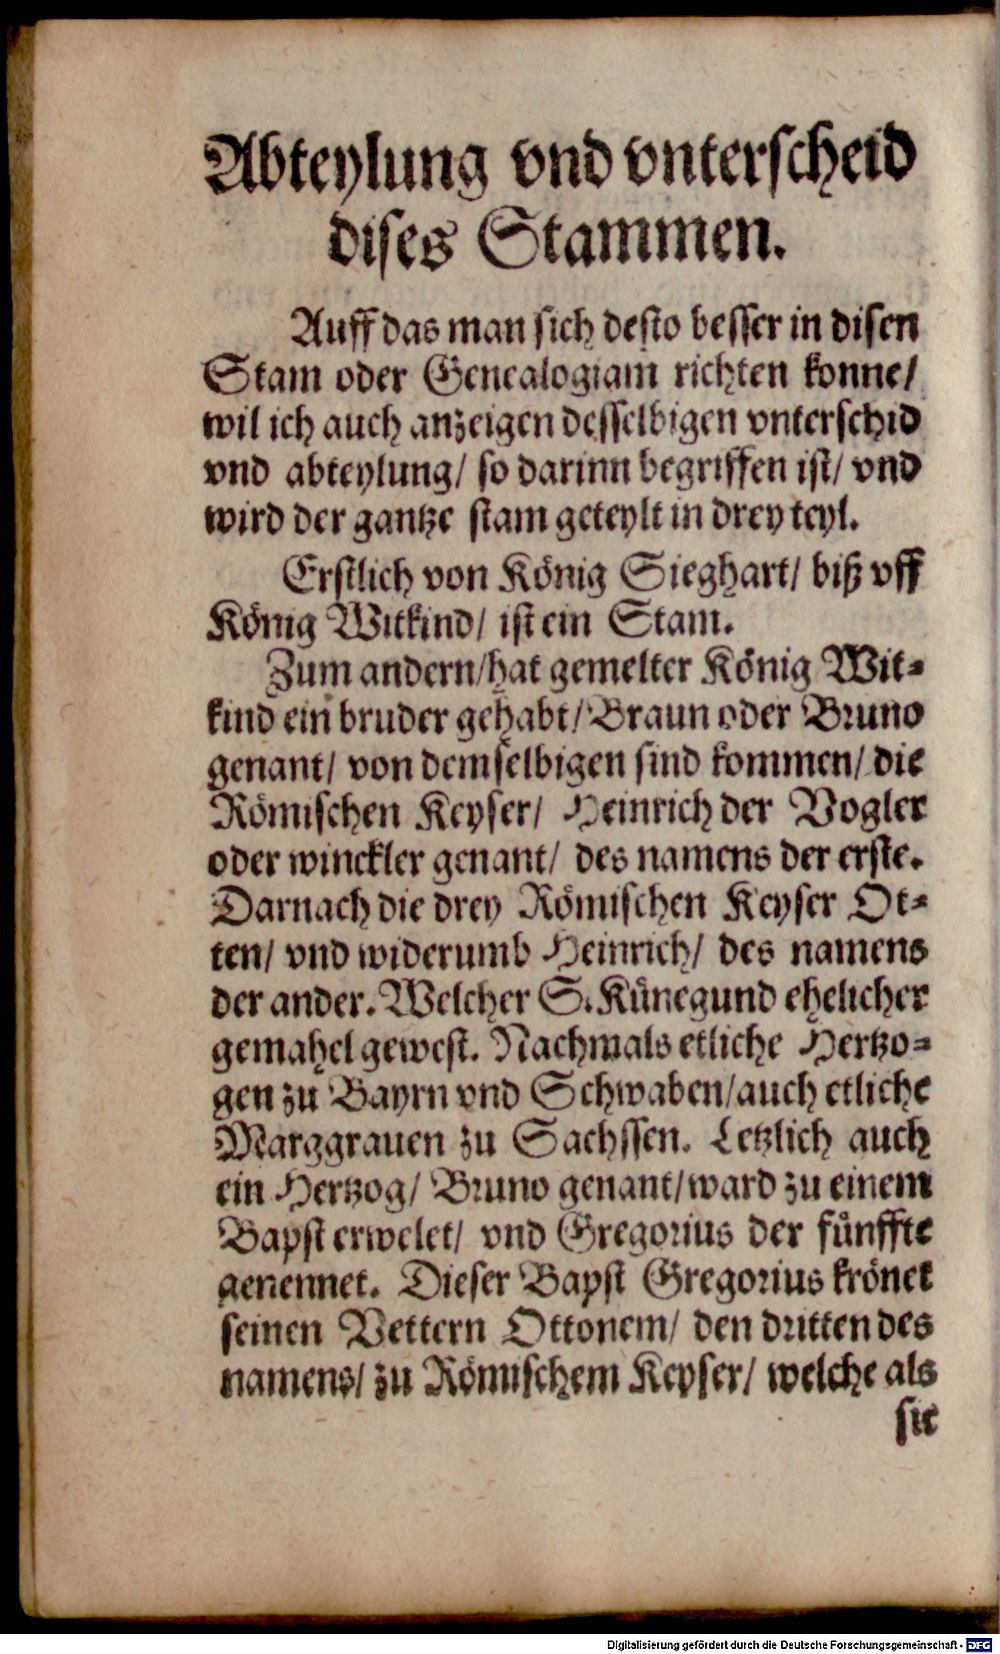 Abteylung vnd vnterscheid
dises Stammen.
Auff das man sich desto besser in disen
Stam oder Genealogiam richten konne/
wil ich auch anzeigen desselbigen vnterschid
vnd abteylung/ so darinn begriffen ist/ vnd
wird der gantze stam geteylt in drey teyl.
Erstlich von König Sieghart/ biß vff
König Witkind/ ist ein Stam.
Zum andern/hat gemelter König Wit-
kind ein bruder gehabt/ Braun oder Bruno
genant/ von demselbigen sind kommen/ die
Römischen Keyser/ Heinrich der Vogler
oder winckler genant/ des namens der erste.
Darnach die drey Römischen Keyser Ot-
ten/ vnd widerumb Heinrich/ des namens
der ander. Welcher S. Künegund ehelicher
gemahel gewest. Nachmals etliche Hertzo-
gen zu Bayrn vnd Schwaben/auch etliche
Marggrauen zu Sachssen. Letzlich auch
ein Hertzog/ Bruno genant/ward zu einem
Bapst erwelet/ vnd Gregorius der fünffte
genennet. Dieser Bapst Gregorius krönet
seinen Vettern Ottonem/ den dritten des
namens/ zu Römischem Keyser/ welche als
sie
Digitalisierung gefördert durch die Deutsche Forschungsgemeinschaft - DFG